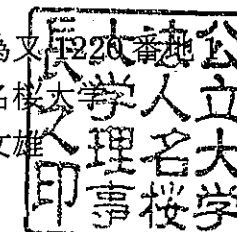 為又 1220 番地 1
名桜大学
文雄
公立大学
法人名桜
大学理事
長之印